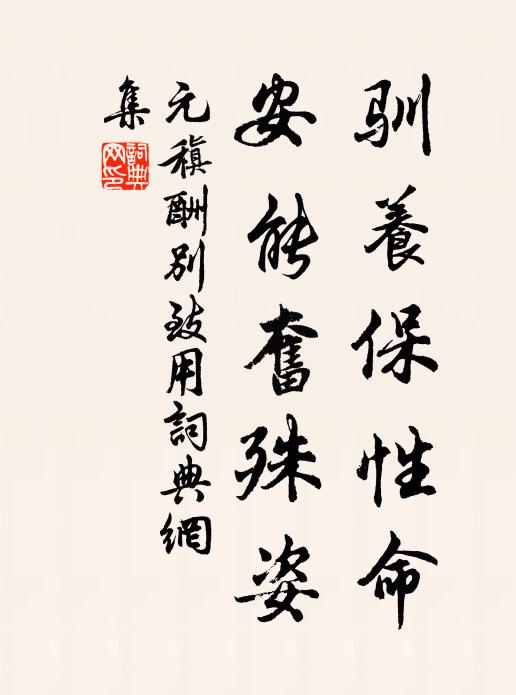 驯養保性命
安能奮殊姿
元稹酬别致用詞典網
集
詞典
网印